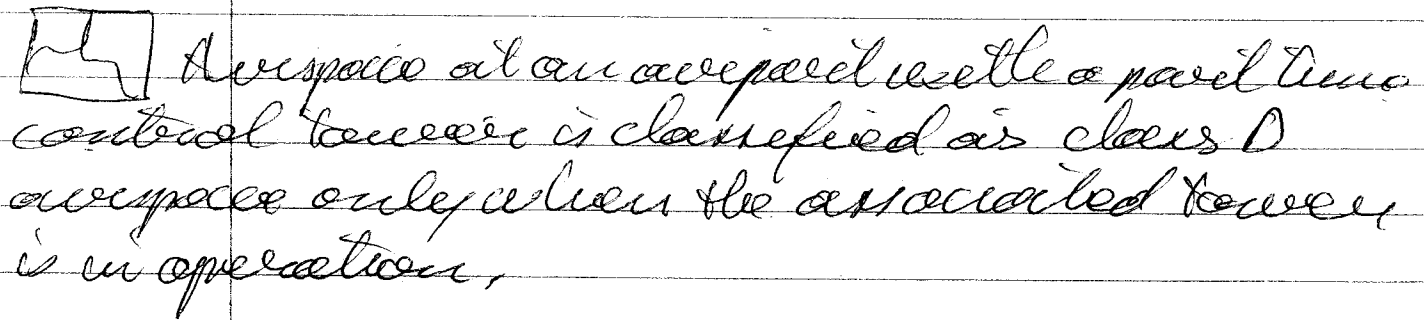 Airspace at an airport with a part time
control tower is classified as class D
airspace only when the associated tower
is in operation.